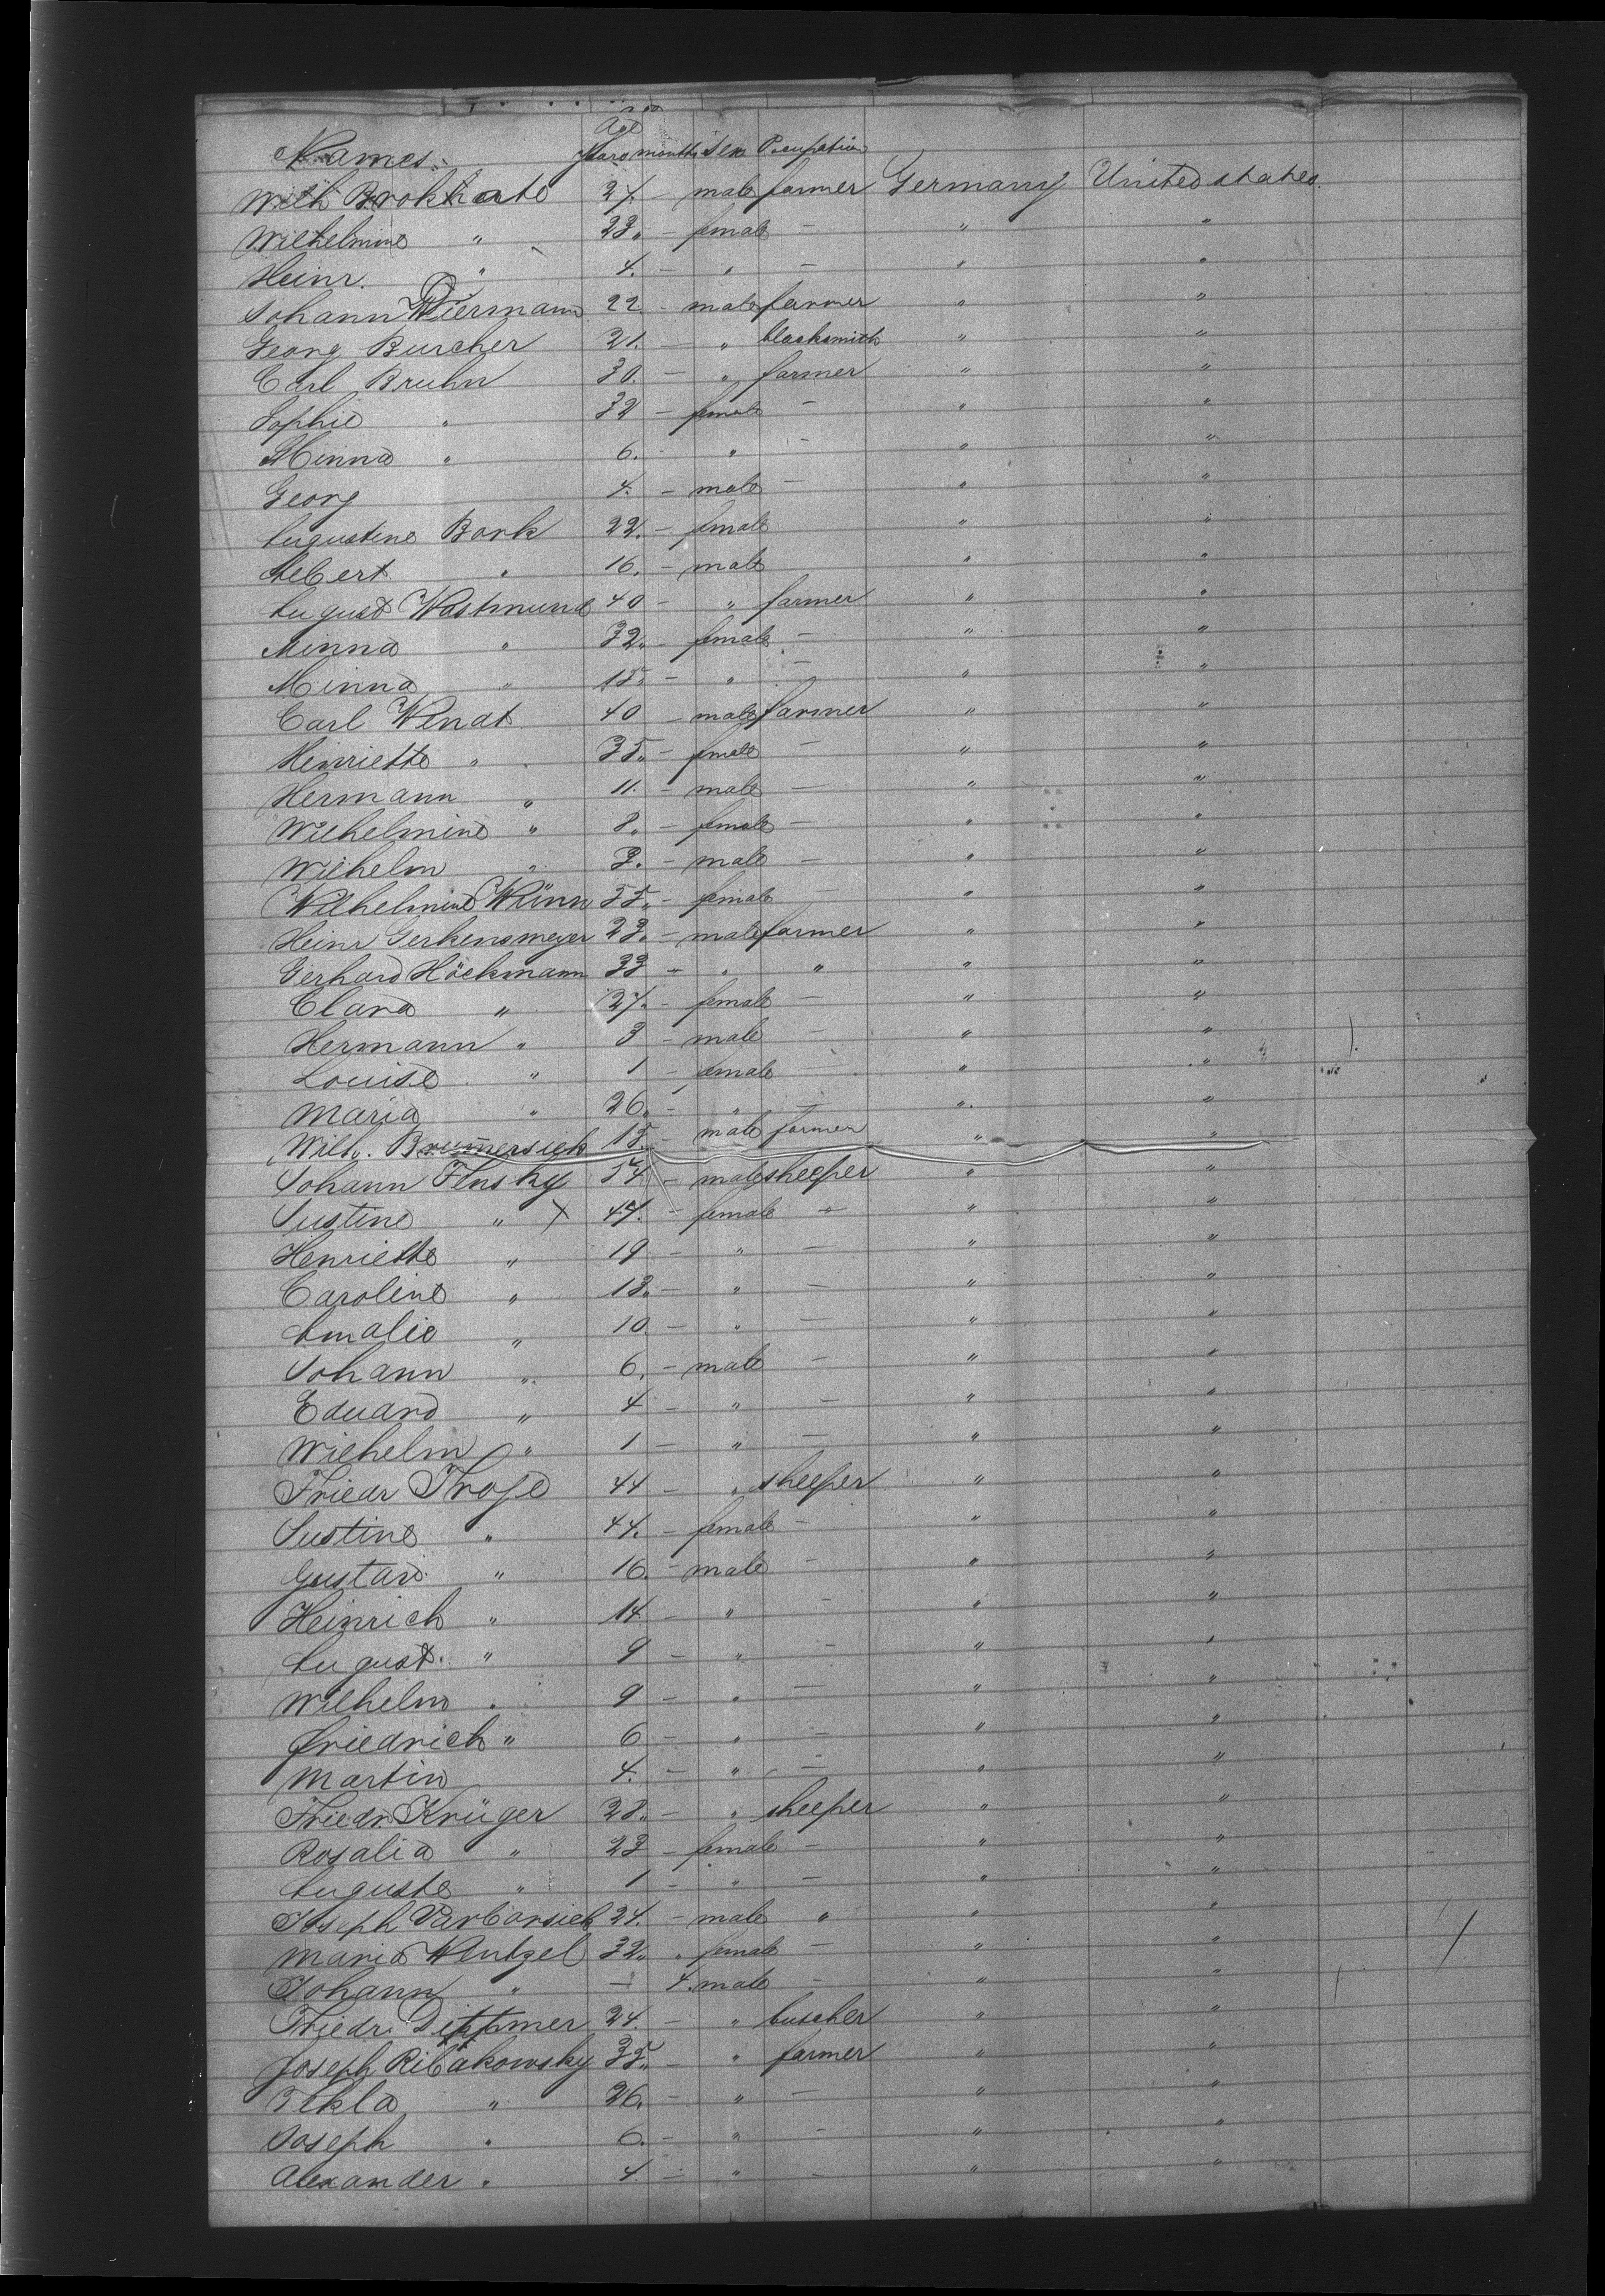 Age
Names. Years months Sex Occupation
Wilh Brokhate 27. - male farmer Germany United states.
Wilhelmine " 23. - female - " "
Heinr. " 4. - " - " "
Johann Diermann 22 - male farmer " "
Georg Burcher 21. - " blacksmith " "
Carl Bruhn 30. - " farmer " "
Sophie " 32 - female - " "
Minna " 6. - " - " "
Georg 4. - male - " "
Augustine Bork 22. - female " "
Albert " 16. - male " "
August Wostmund 40 - " farmer " "
Minna " 32. - female - " "
Minna " 15. - " - " "
Carl Wendt 40 - male farmer " "
Henriette " 35. - female - " "
Hermann " 11. - male - " "
Wilhelmine " 8. - female - " "
Wilhelm " 3. - male - " "
Wilhelmine Wünn 55. - female - " "
Heinr Gerkensmeyer 23. - male farmer " "
Gerhard Höckmann 33 - " " " "
Clara " 27. - female - " "
Hermann " 3 - male - " "
Louise " 1 - female - " "
Maria " 26. - " - " "
Wilh. Brumersiek 15. - male farmer " "
Johann Flinsky 54 - male sheeper " "
Justine " X 47. - female - " "
Henriette " 19 - " - " "
Caroline " 13. - " - " "
Amalie " 10. - " - " "
Johann " 6. - male - " "
Eduard " 4 - " - " "
Wilhelm " 1 - " - " "
Friedr Throse 44 - " sheeper " "
Justine " 44. - female - " "
Gustav " 16. - male - " "
Heinrich " 14 - " - " "
August " 9 - " - " "
Wilhelm " 9 - " - " "
Friedrich " 6 - " - " "
Martin 4. - " - " "
Friedr. Krüger 28. - " sheeper " "
Rosalia " 23 - female - " "
Auguste " 1 - " - " "
Joseph Barbarsick 24. - male " " "
Maria Wentzel 32. " female - " "
Johann " - 4. male - " "
Friedr. Dittmer 24. - " butcher " "
Joseph Ribakowsky 35. - " farmer " "
Tekla " 26. - " - " "
Joseph " 6. - " - " "
Alexander " 4. - " - " "